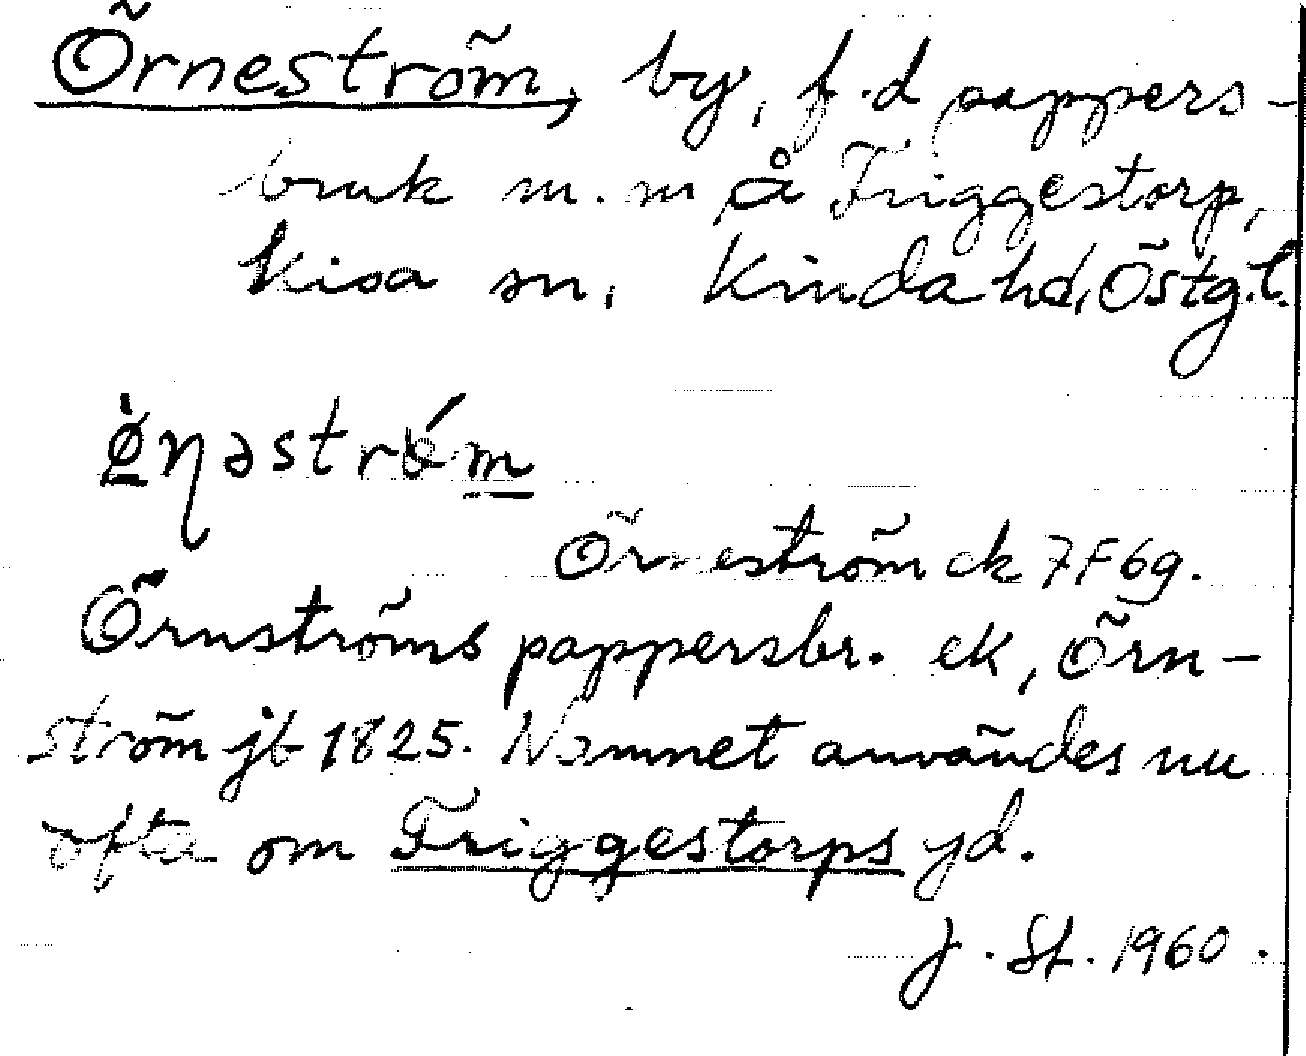 Örneström, by, f.d pappers-
bruk m.m på Friggestorp,
Kisa sn, Kinda hd, Östg.l.
ö̀ɳəstrǿm
Örneström ek 7F6g.
Örnströms pappersbr. ek, Örn-
ström jb 1825. Namnet användes nu
ofta om Friggestorps yd.
J. St. 1960.